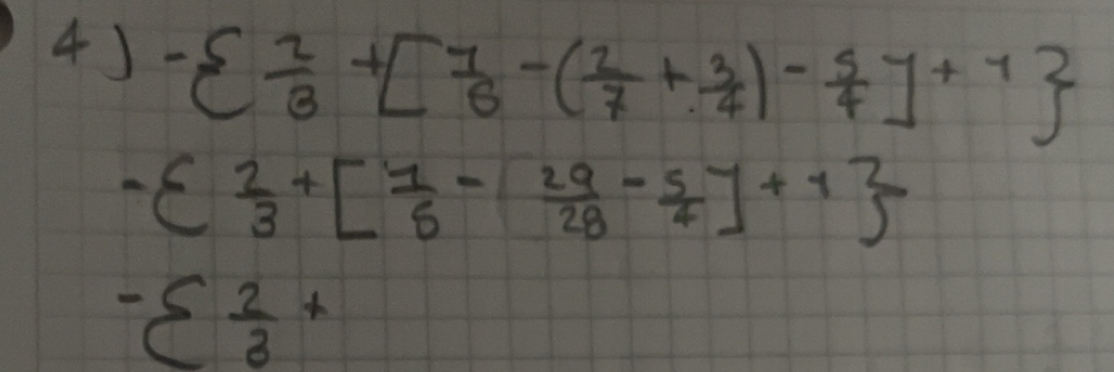 4) -{ 2/3 + [ 1/6 - ( 2/7 + 3/4 ) - 5/4 ] + 1 }
-{ 2/3 + [ 1/6 - 29/28 - 5/4 ] + 1 }
-{ 2/3 +